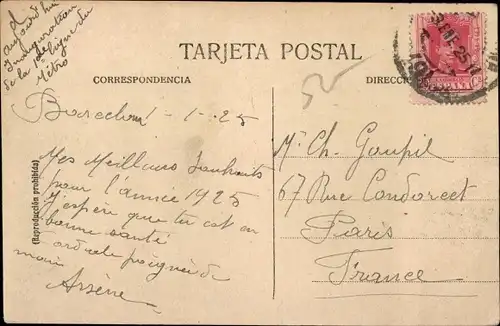 aujourd'hui
Inauguration
de la 1ère ligne du
Métro
TARJETA POSTAL
CORRESPONDENCIA
DIRECCIÓ
ESPAÑA
(Reproducción prohibida)
-1-25
Mes Meilleurs Souhaits
pour l'année 1925
J'espère que tu est en
bonne santé
poignée de
main
Arsène
Mr Ch. Goupil
67 Rue Condorcet
Paris
France